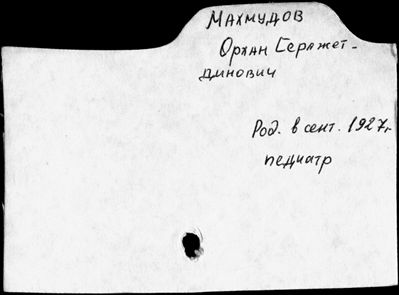 Махмудов
Орхан Серажет-
динович
Род. в сент. 1927г.
педиатр